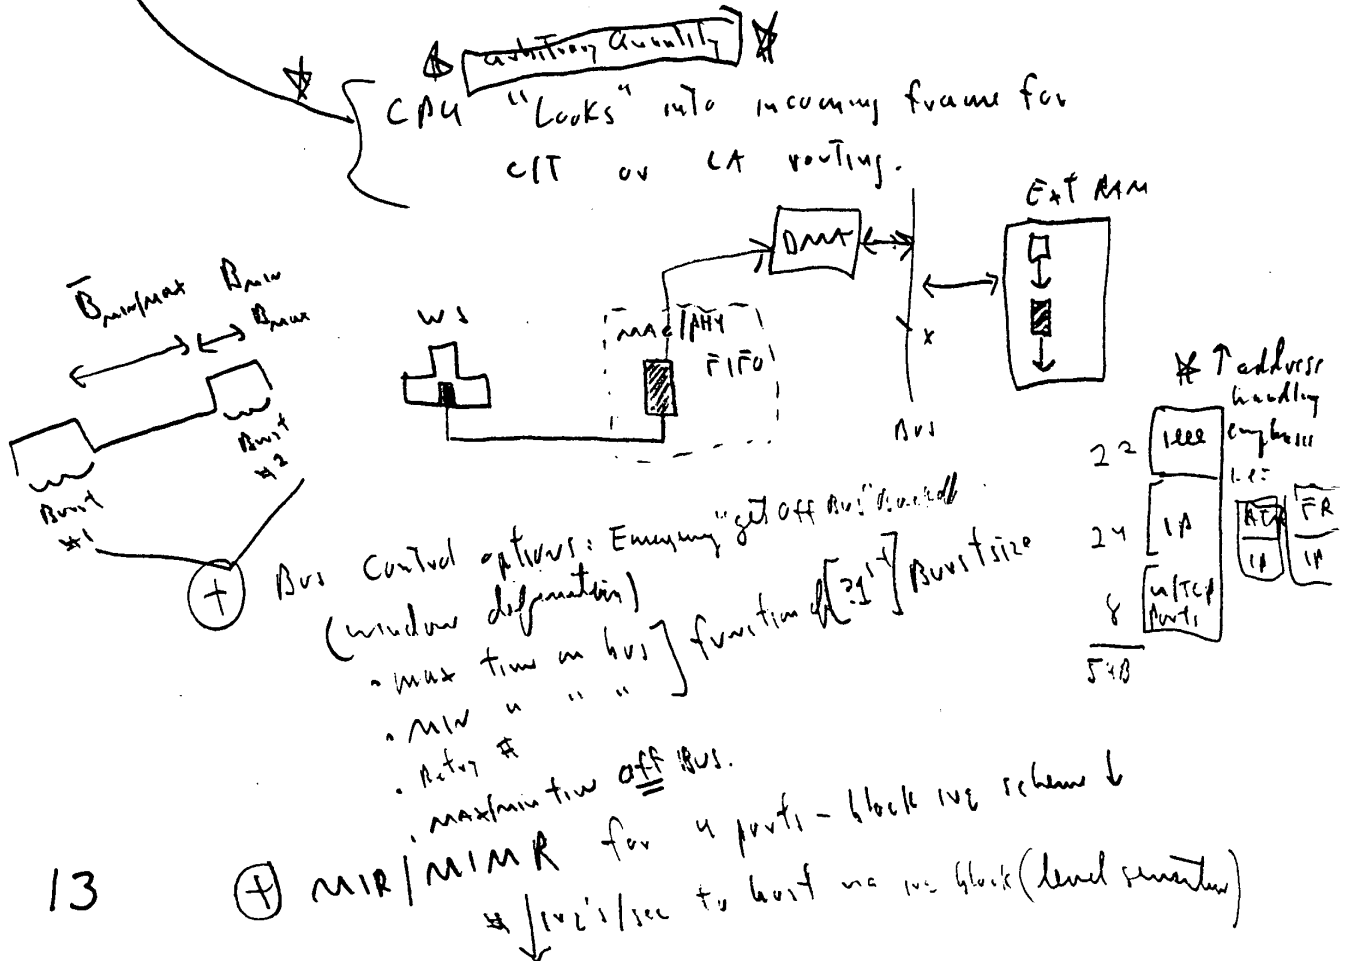 arbitrary Quantity
CPU "Looks" into incoming frame for
C/T or CA routing.
EXT RAM
DMA
B min/max
B min
B max
WS
MAC/PHY
FIFO
x
Bus
Burst
#1
Burst
#2
↑ address
handling
emphasis
i.e:
22 IEEE
24 IP
8 u/TCP
Ports
54B
ATM
IP
FR
IP
+ Bus Control options: Emergency "get off Bus"
(window definition)
• max time on bus ] function of [?1st] Burst size
• MIN " " "
• Retry #
• max/min time off Bus.
13
+ MIR/MIMR for 4 ports - block irq scheme ↓
# ↓ irq's/sec to host via irq block (level sensitive)